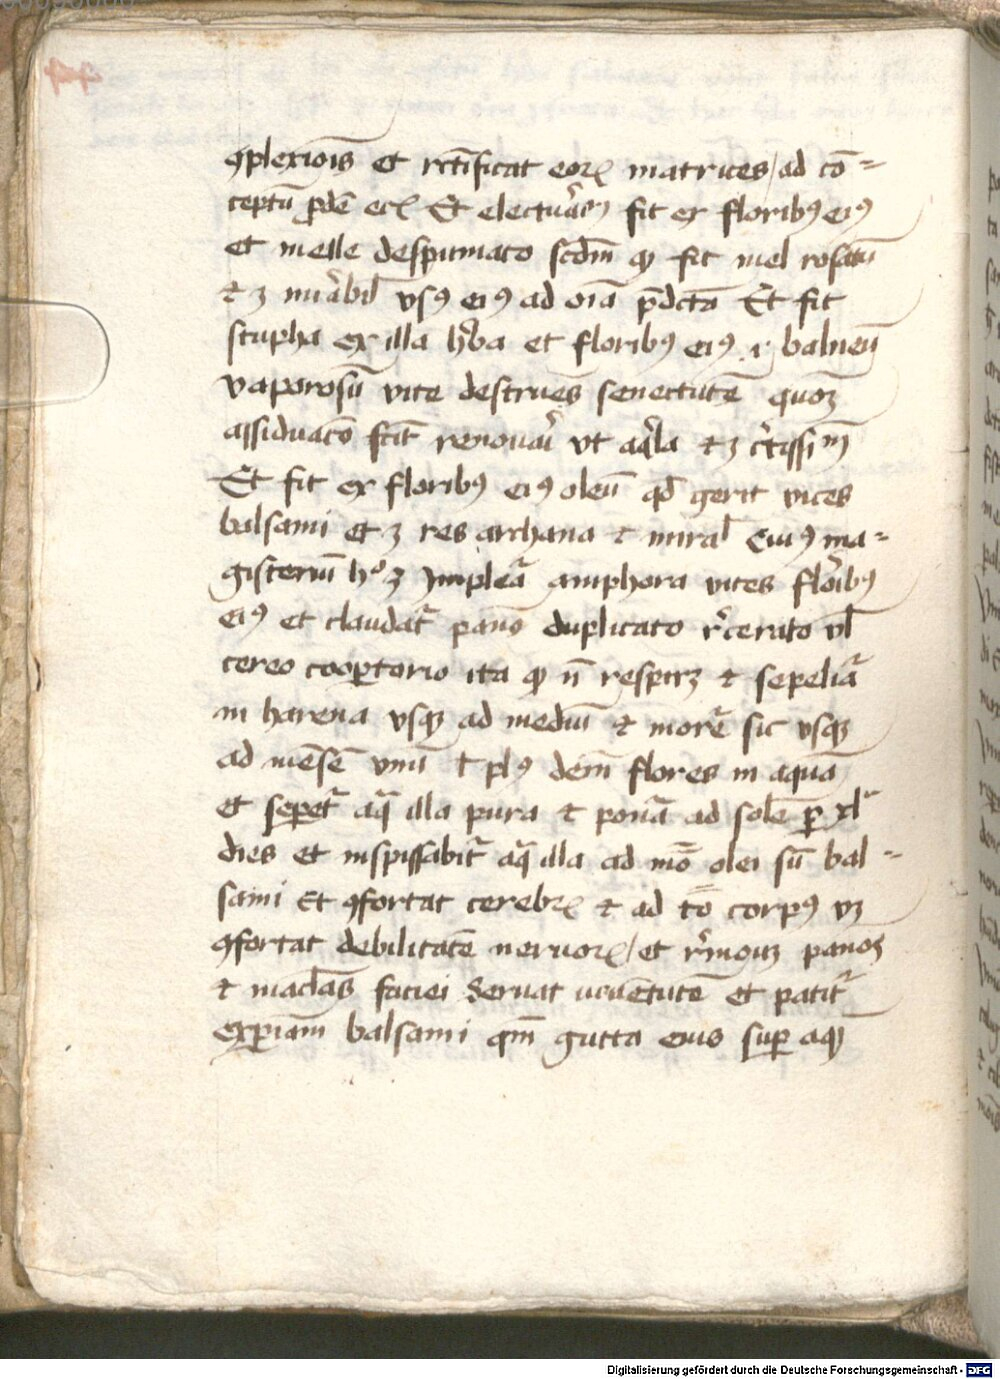 ꝯplexiois̄ et rctīficat eoꝝ matrices / ad cō=
ceptū ꝓdē ecꝉ Et electuar̄ fit ex floribꝰ eiꝰ
et melle despumato scdm̄ ꝙ fit mel rosatū
⁊ ꝫ mirabil̄ vsꝰ eiꝰ ad oīa p̄dcta Et fit
stupha ex illa h̓ba et floribꝰ eiꝰ .i. balneū
vaporosū vite destruēs senectutē quoꝫ
assiduatō fcit̄ renouari vt aq̓la ⁊ ꝫ c̓tissim̄
Et fit ex floribꝰ eiꝰ oleū qd̄ gerit vices
balsami et ꝫ res archana ⁊ miral̄ Cuiꝰ ma=
gisteriū hͦ ꝫ Impleat̄ amphora vites florībꝰ
eiꝰ et claudat̓ pano duplicato īcerato vl̄
cereo coop̱torio ita ꝙ n̄ respiret ⁊ sepeliat̄
in harena vsqꝫ ad mediū ⁊ moret̄ sic vsqꝫ
ad mēsē vnū ł plꝰ dem̄ flores in aquā
et sepet̓ aq̄ illa pura ⁊ ponat̄ ad solē ꝑ xl
dies et inspissabit̓ aq̄ illa ad mō olei sū bal=
sami Et ꝯfortat cerebꝝ ⁊ ad tō corpꝰ vꝫ
ꝯfortat debilitatē neruoꝝ / et r̓mouꝫ panoꝫ
⁊ maclās faciei Seruat iuuētutē et patit̓
exꝑiam̄ balsami qm̄ gutta eius suꝑ aqꝫ
Digitalisierung gefördert durch die Deutsche Forschungsgemeinschaft - DFG